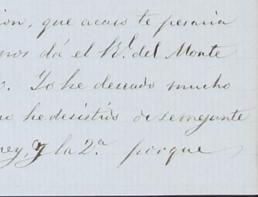 ion, que acaso te
nos dá el Rl. del Monte
o. Yo he deseado mucho
no he desistido de semejante
rey, y la 2.a porque